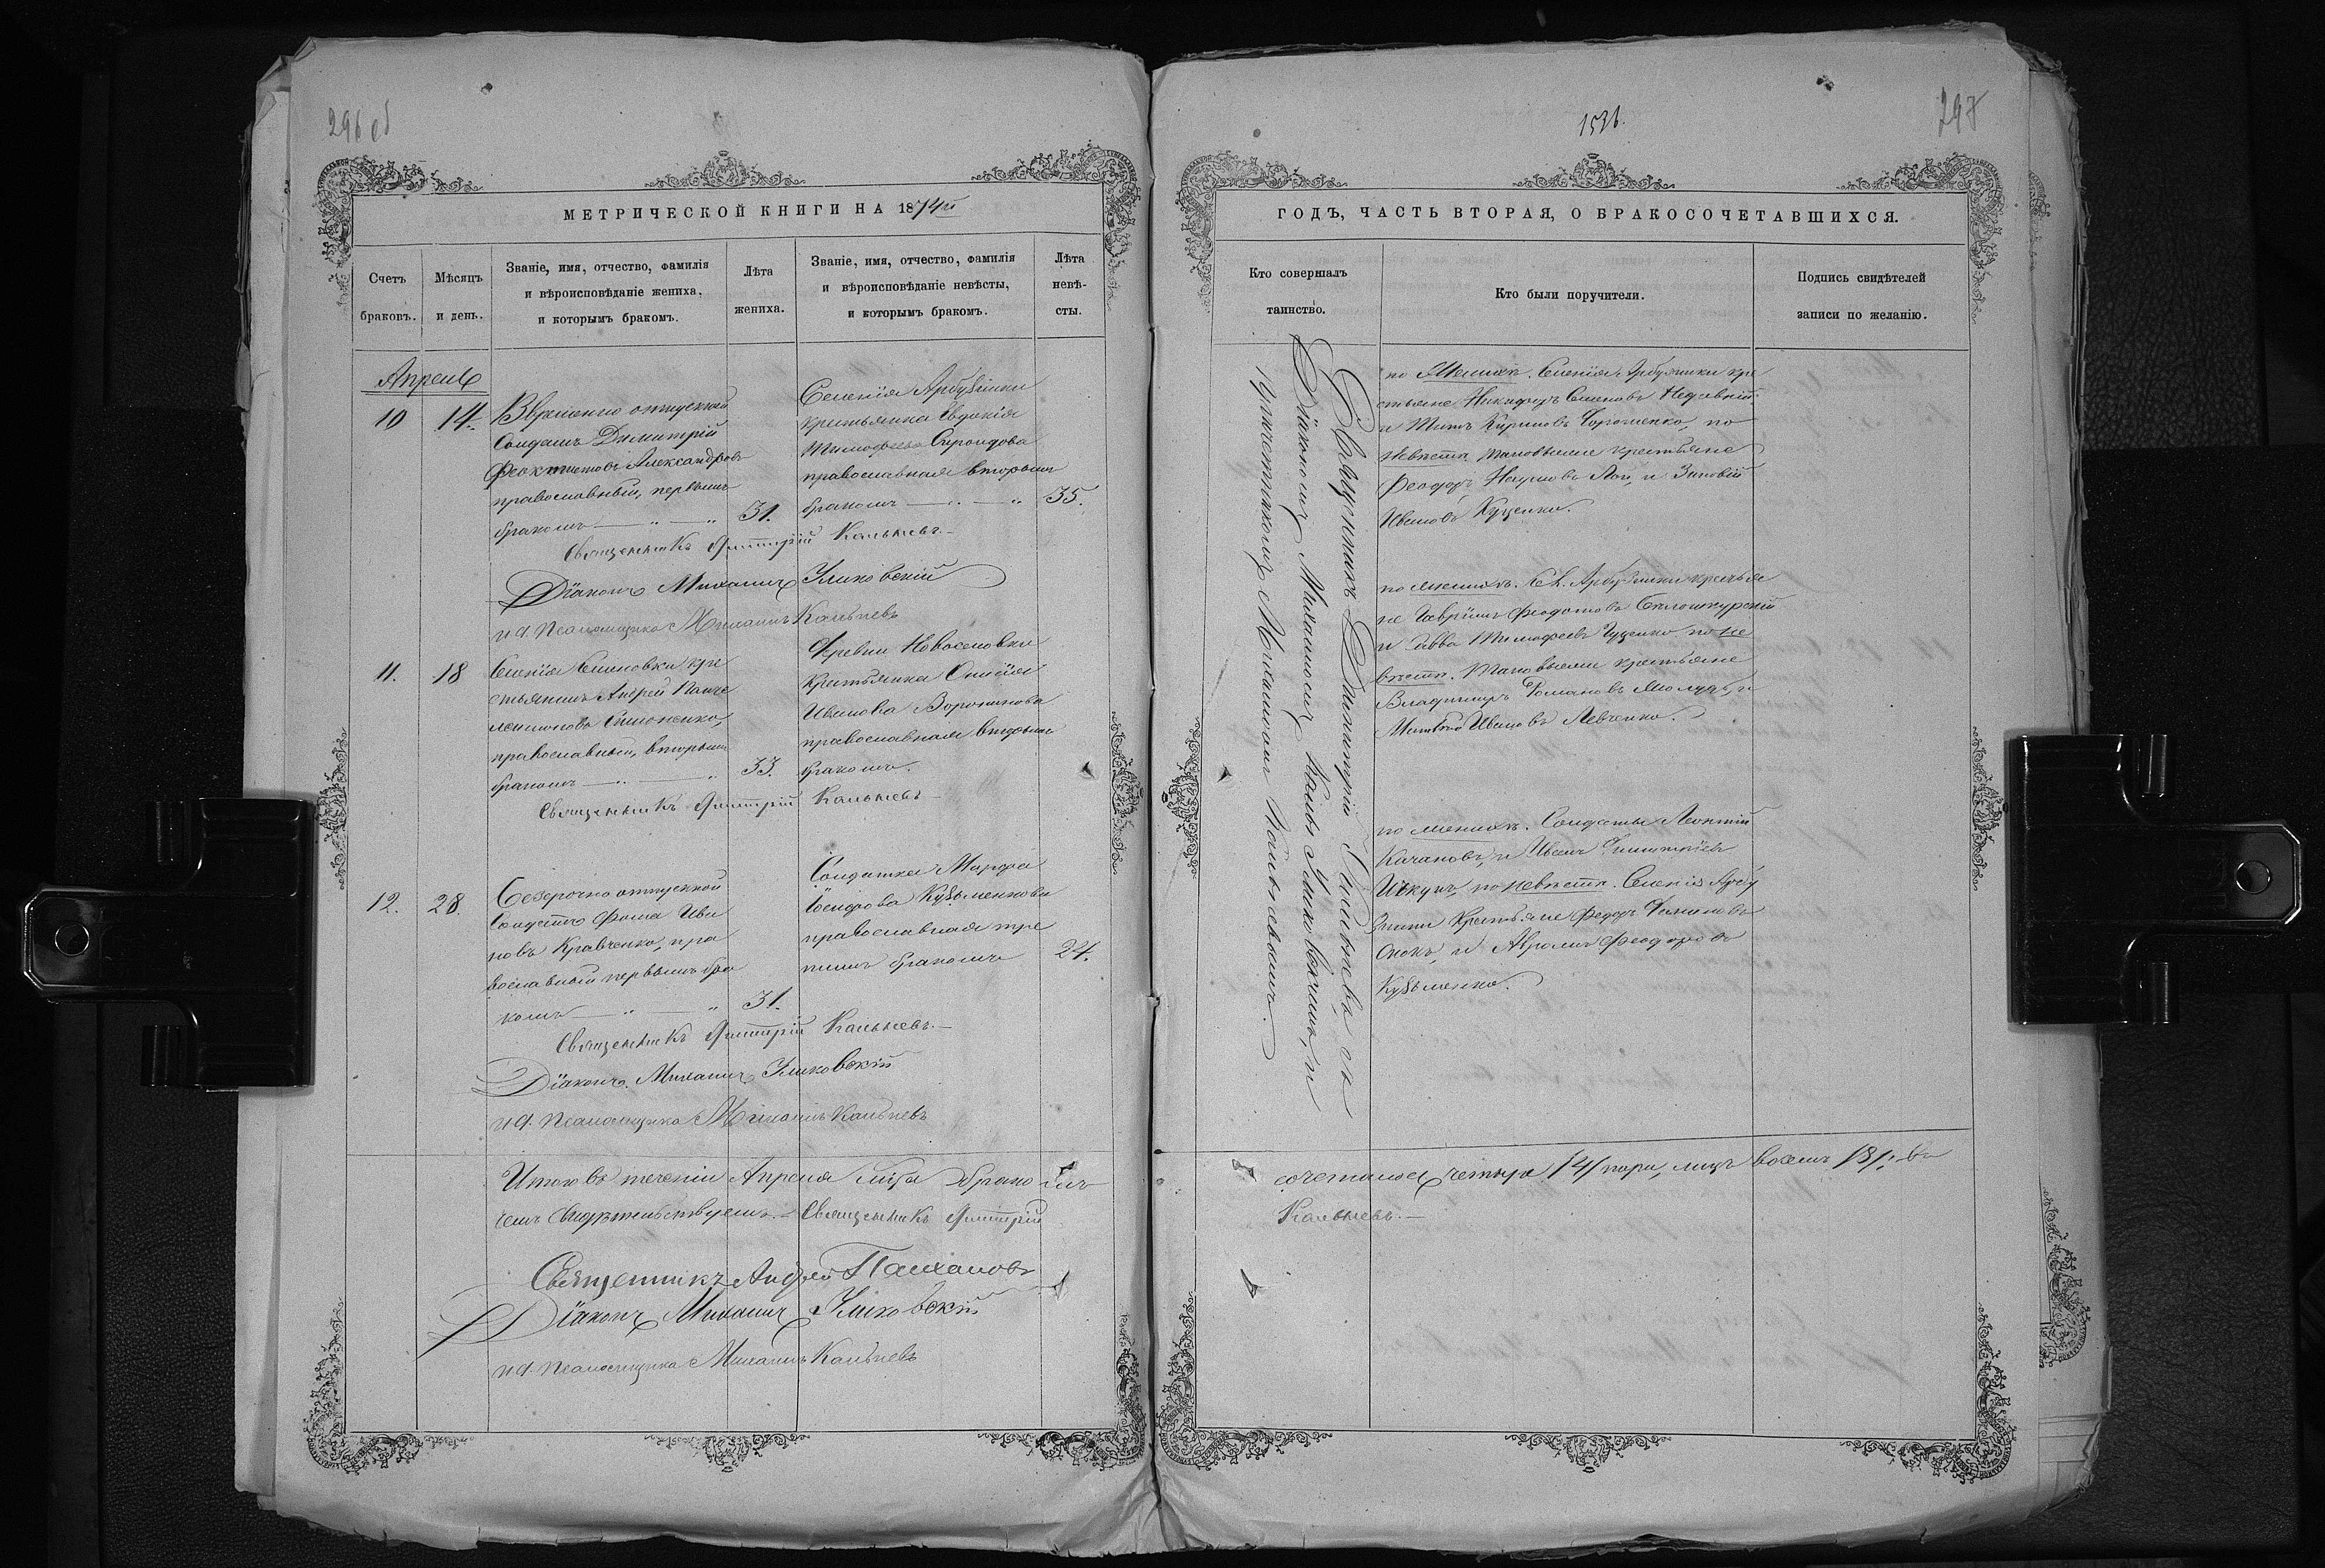 296 об
МЕТРИЧЕСКОЙ КНИГИ НА 1874й
Счетъ браковъ.
Мѣсяцъ и день.
Званіе, имя, отчество, фамилія
и вѣроисповѣданіе жениха,
и которымъ бракомъ.
Лѣта
жениха.
Званіе, имя, отчество, фамилія
и вѣроисповѣданіе невѣсты,
и которымъ бракомъ.
Лѣта
невѣ-
сты.
Апрель
10
14.
Временно отпускной
Солдатъ Димитрій
Феоктистовъ Александровъ
православный, первымъ
бракомъ
31.
Селенія Арбузинки
крестьянка Евдокія
Тимофеева Спиридова
православная вторымъ
бракомъ
35.
Священникъ Димитрій Кальневъ
Діаконъ Михаилъ Уликовскій
и д. Псаломщика Михаилъ Кальневъ
11.
18
Селенія Семеновки кре
стьянинъ Андрей
Симоненко,
православный, вторымъ
бракомъ
33.
Деревни Новоселовки
крестьянка
Иванова Воронинова
православная вторымъ
бракомъ.
Священникъ Димитрій Кальневъ
12.
28.
Безсрочно отпускной
Солдатъ Фома Ива
новъ Кравченко, пра
вославный первымъ бра
комъ
31.
Солдатка Марфа
Кузьменкова
православная тре
тимъ бракомъ
24.
Священникъ Димитрій Кальневъ.
Діаконъ Михаилъ Уликовскій
и д. Псаломщика Михаилъ Кальневъ
Итого въ теченіи Апреля м-ца брако
чемъ свидѣтельствуемъ. Священникъ Димитрій
Священникъ Андрей
Діаконъ Михаилъ Уликовскій
и д. Псаломщика Михаилъ Кальневъ
1536.
297
ГОДЪ, ЧАСТЬ ВТОРАЯ, О БРАКОСОЧЕТАВШИХСЯ.
Кто совершалъ
таинство.
Кто были поручители.
Подпись свидѣтелей
записи по желанію.
Священникъ Димитрій Кальневъ, съ
Діакономъ Михаиломъ Уликовскимъ, и
Причетникомъ Михаиломъ Кальневымъ.
по женихѣ. Селенія Арбузинки кре
стьяне Никифоръ Семеновъ
и Титъ Кириловъ по
невѣстѣ таковыеже крестьяне
Феодоръ Наумовъ и Зиновій
Ивановъ Куценко.
по женихѣ. Сел. Арбузинки крестья
не Гавріилъ Федотовъ
и Савва Тимофеевъ по не
вѣстѣ. таковыеже крестьяне
Владимиръ Романовъ и
Ивановъ Левченко.
по женихѣ. Солдаты Леонтій
Качановъ, и Иванъ Димитріевъ
по невѣстѣ. Селенія Арбу
зинки крестьяне Федоръ
и Феодоровъ
Кузьменко.
сочеталось четыре /4/ пары, лицъ восемъ /8/; въ
Кальневъ.